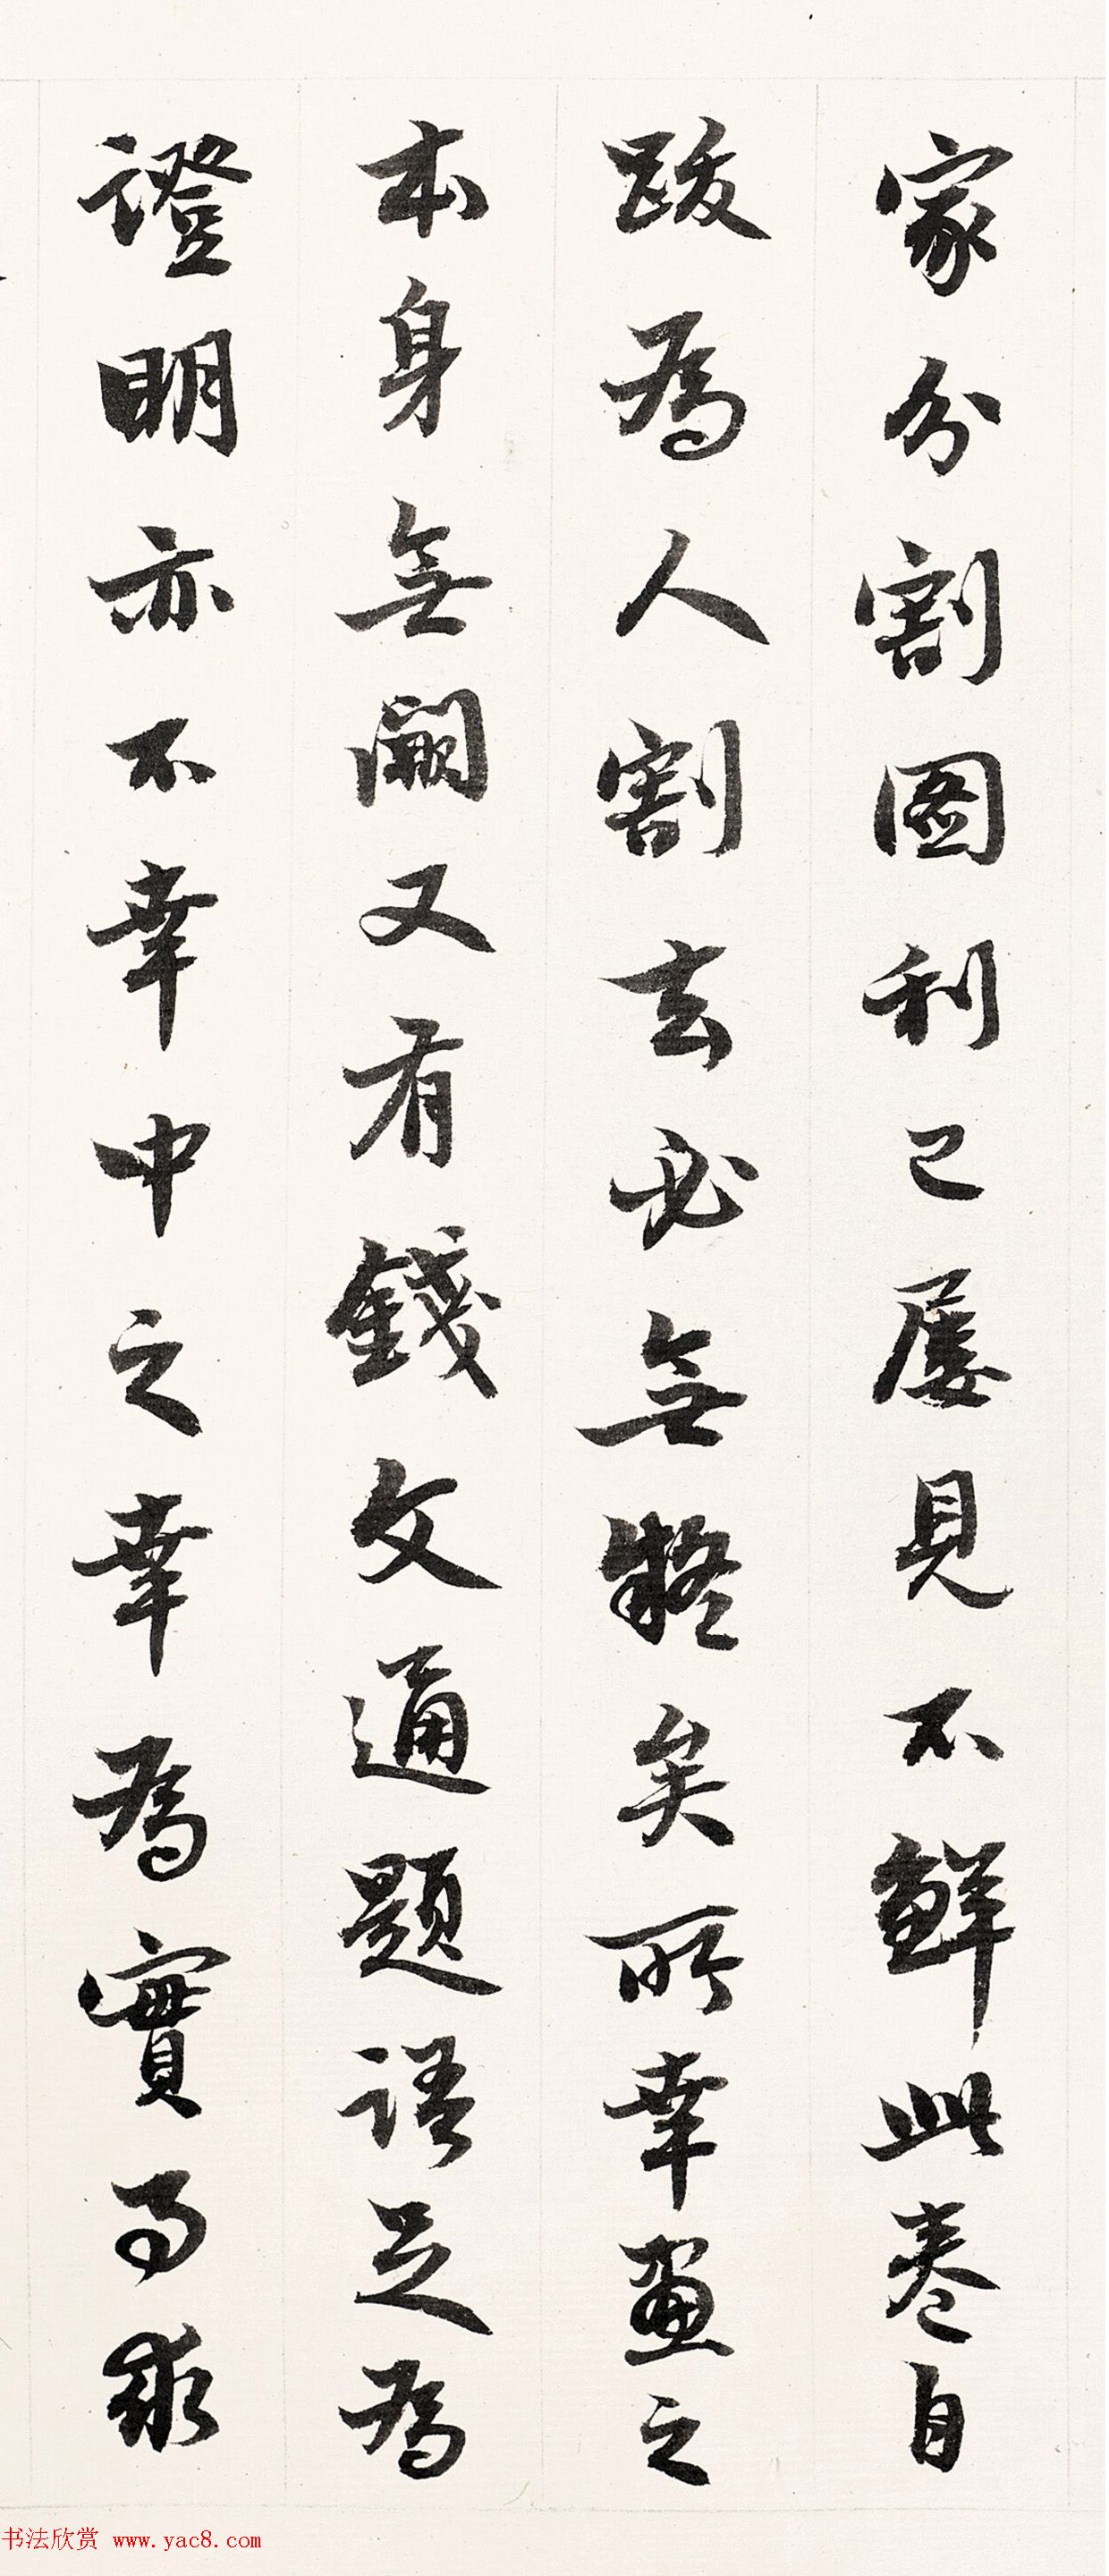 家分割圖利己屢見不鮮此卷自
跋為人割去必無疑矣所幸畫之
本身無闕又有錢文通題語足為
證明亦不幸中之幸為實事求
书法欣赏 www.yac8.com